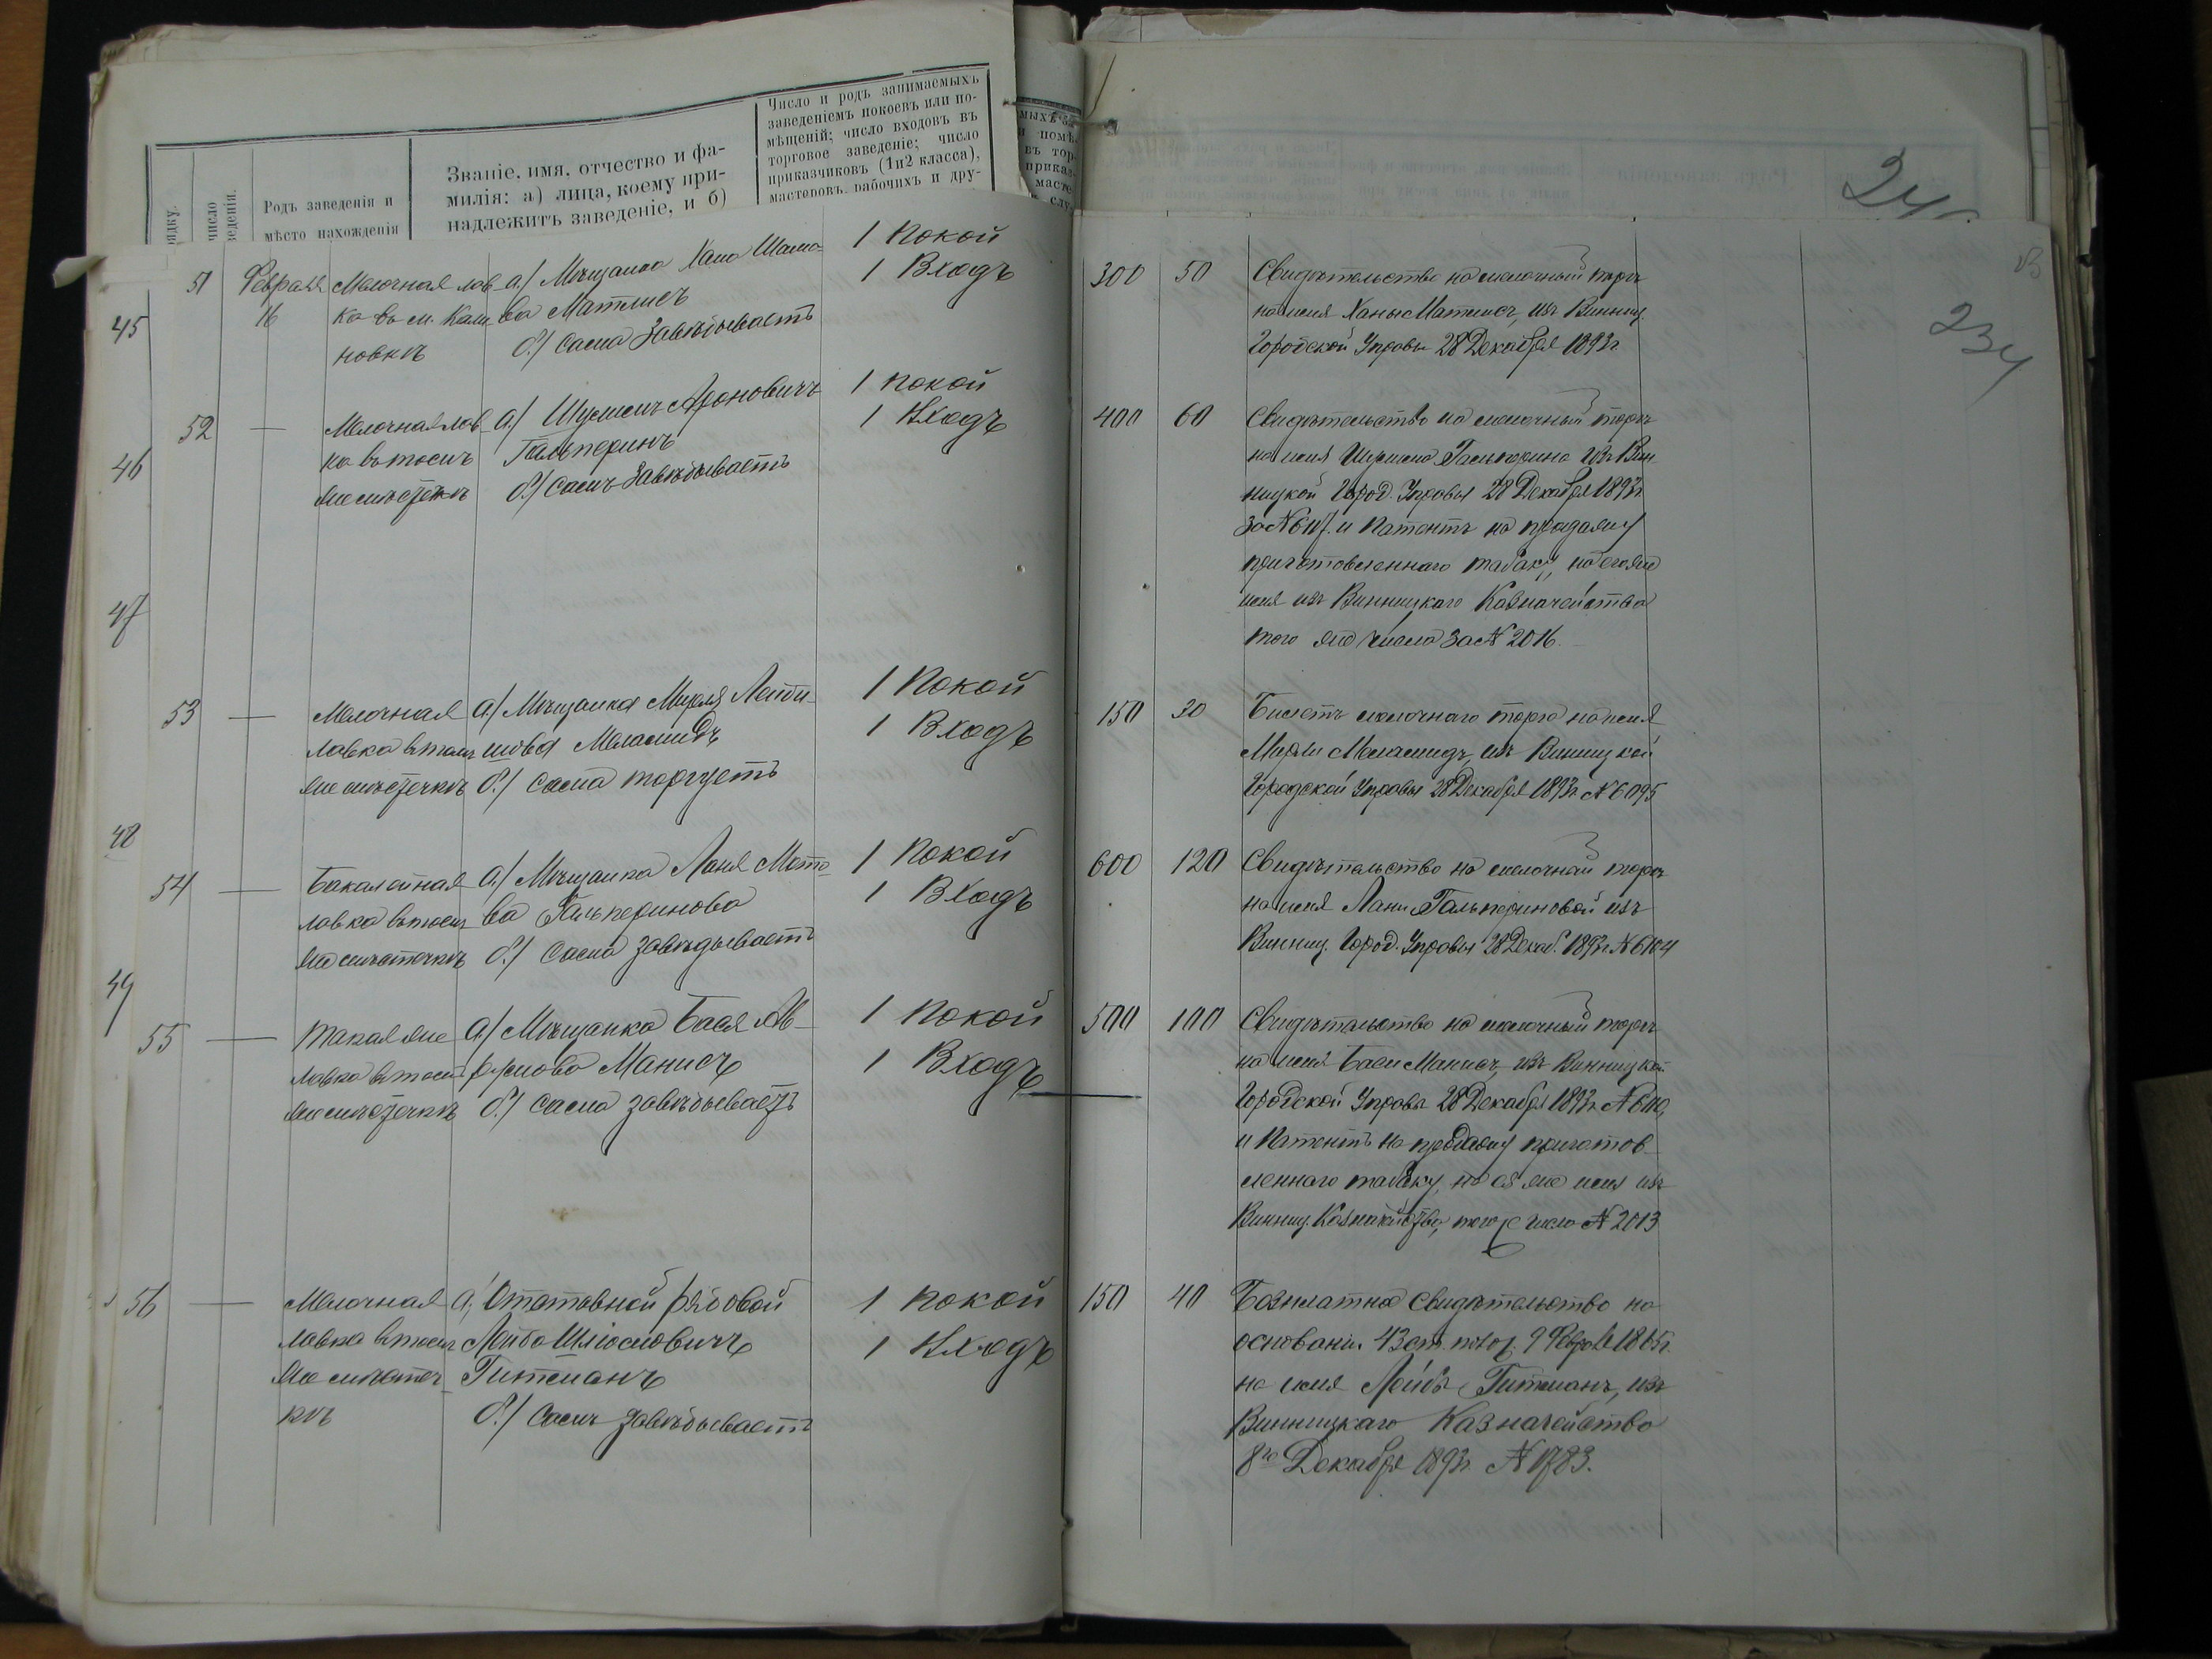 Родъ заведенія и
мѣсто нахожденія
Званіе, имя, отчество и фа-
милія: а) лица, коему при-
надлежитъ заведеніе, и б)
Число и родъ занимаемыхъ
заведеніемъ покоевъ или по-
мѣщеній; число входовъ въ
торговое заведеніе; число
приказчиковъ (1 и 2 класса),
мастеровъ, рабочихъ и дру-
45
46
47
48
49
51
Февраля
16
Мелочная лав-
ка въ м. Кали-
новкѣ
а.) Мѣщанка Хана Шамо-
ва Матлисъ
б.) сама завѣдываетъ
1 Покой
1 Входъ
52
Мелочная лав-
ка въ томъ
же мѣстечкѣ
а.) Шулимъ Ароновичъ
Гальперинъ
б.) самъ завѣдываетъ
1 покой
1 Входъ
53
Мелочная
лавка въ томъ
же мѣстечкѣ
а.) Мѣщанка Мирля Лейби-
шова Меламидъ
б.) сама торгуетъ
1 Покой
1 Входъ
54
Бакалейная
лавка въ томъ
же мѣстечкѣ
а.) Мѣщанка Ланя Мото-
ва Гальперинова
б.) сама завѣдываетъ
1 Покой
1 Входъ
55
такая же
лавка въ томъ
же мѣстечкѣ
а.) Мѣщанка Бася Ав-
румова Манисъ
б.) сама завѣдываетъ
1 Покой
1 Входъ
56
Мелочная
лавка въ томъ
же мѣстеч-
кѣ
а.) Отставной рядовой
Лейба Шліомовичъ
Гитманъ
б.) самъ завѣдываетъ
1 покой
1 Входъ
24
234
300 50
Свидѣтельство на мелочный торгъ
на имя Ханы Матлисъ, изъ Винниц.
Городской Управы 28 Декабря 1893 г.
400 60
Свидѣтельство на мелочный торгъ
на имя Шулима Гальперина изъ Вин-
ницкой Город. Управы 28 Декабря 1893 г.
за № 6117. и Патентъ на продажу
приготовленнаго табаку, на его же
имя изъ Винницкаго Казначейства
того же числа за № 2016.
150 30
Билетъ мелочнаго торга на имя
Мирли Меламидъ, изъ Винницкой
Городской Управы 28 Декабря 1893 г. № 6095
600 120
Свидѣтельство на мелочный торгъ
на имя Лани Гальпериновой изъ
Винниц. Город. Управы 28 Декаб. 1893 г. № 6104
500 100
Свидѣтельство на мелочный торгъ
на имя Баси Манисъ, изъ Винницкой
Городской Управы 28 Декабря 1893 г. № 6110,
и Патентъ на продажу приготов-
леннаго табаку, на ея же имя изъ
Винниц. Казначейства, того же числа № 2013
150 40
Безплатное свидѣтельство на
основаніи 43 ст. полож. 9 Февраля 1865 г.
на имя Лейбы Гитманъ, изъ
Винницкаго Казначейства
8го Декабря 1893 г. № 1783.